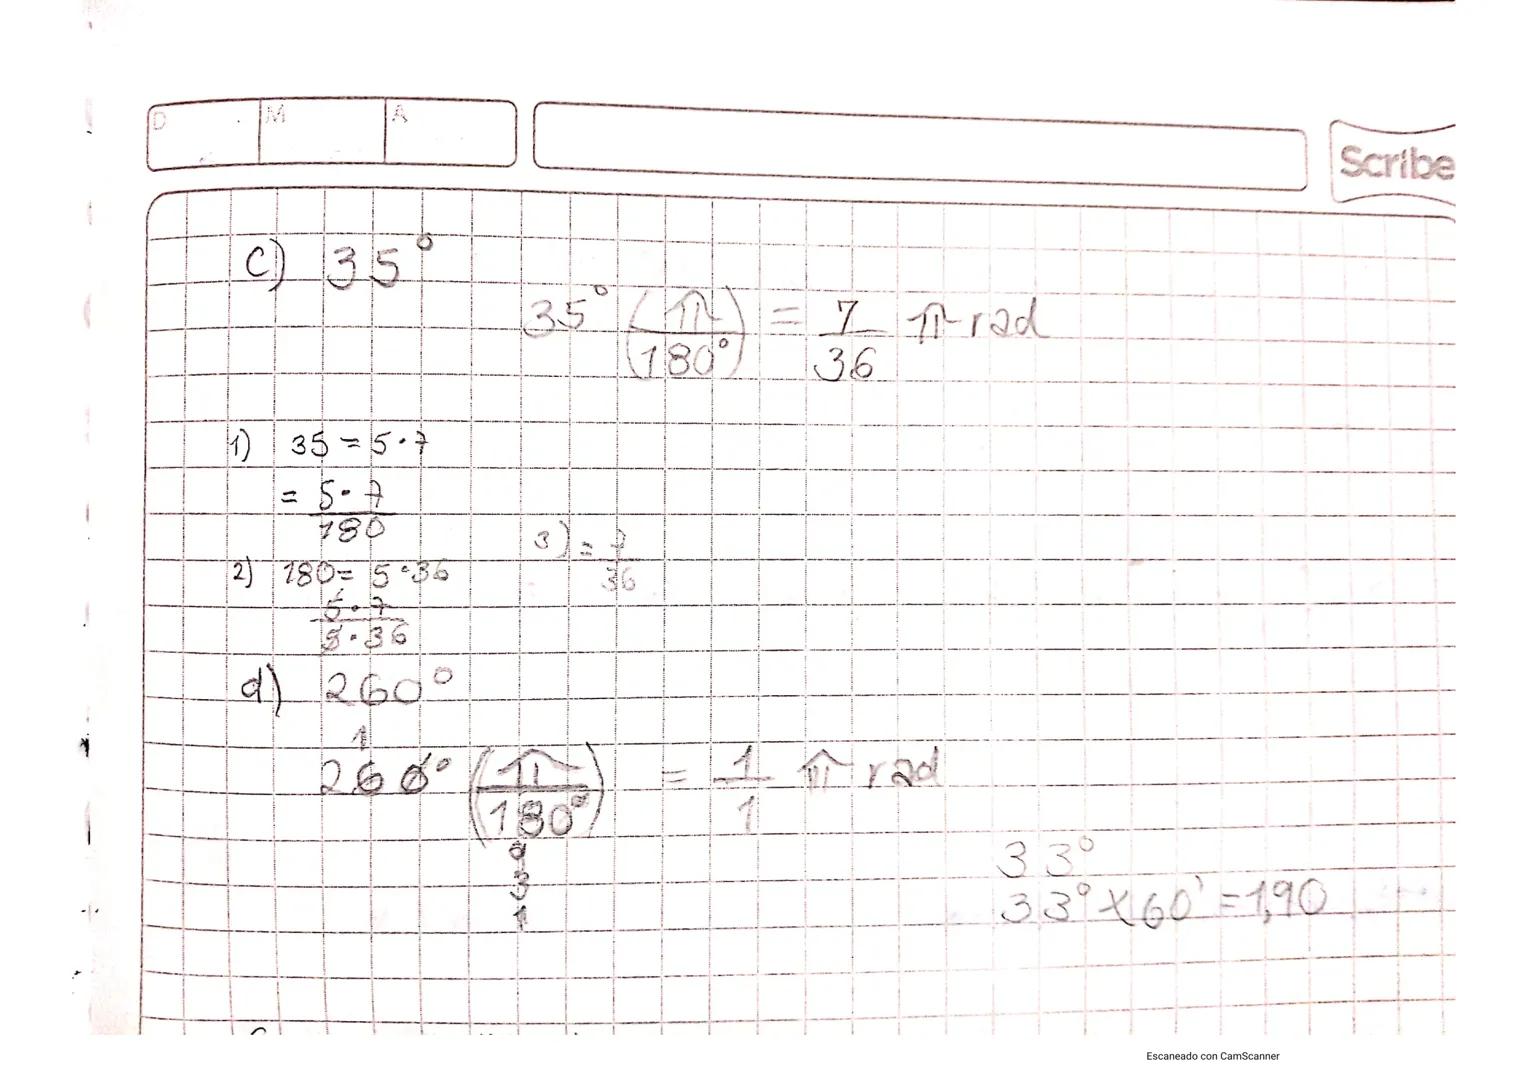 D M A
Scribe
c) 35°
35° (π/180°) = 7/36 π rad
1) 35 = 5·7
= 5·7/180
3) = 7/36
2) 180 = 5·36
5·7/5·36
d) 260°
1
260° (π/180°) = 1/1 π rad
9
3
1
33°
33° × 60' = 1,90
Escaneado con CamScanner